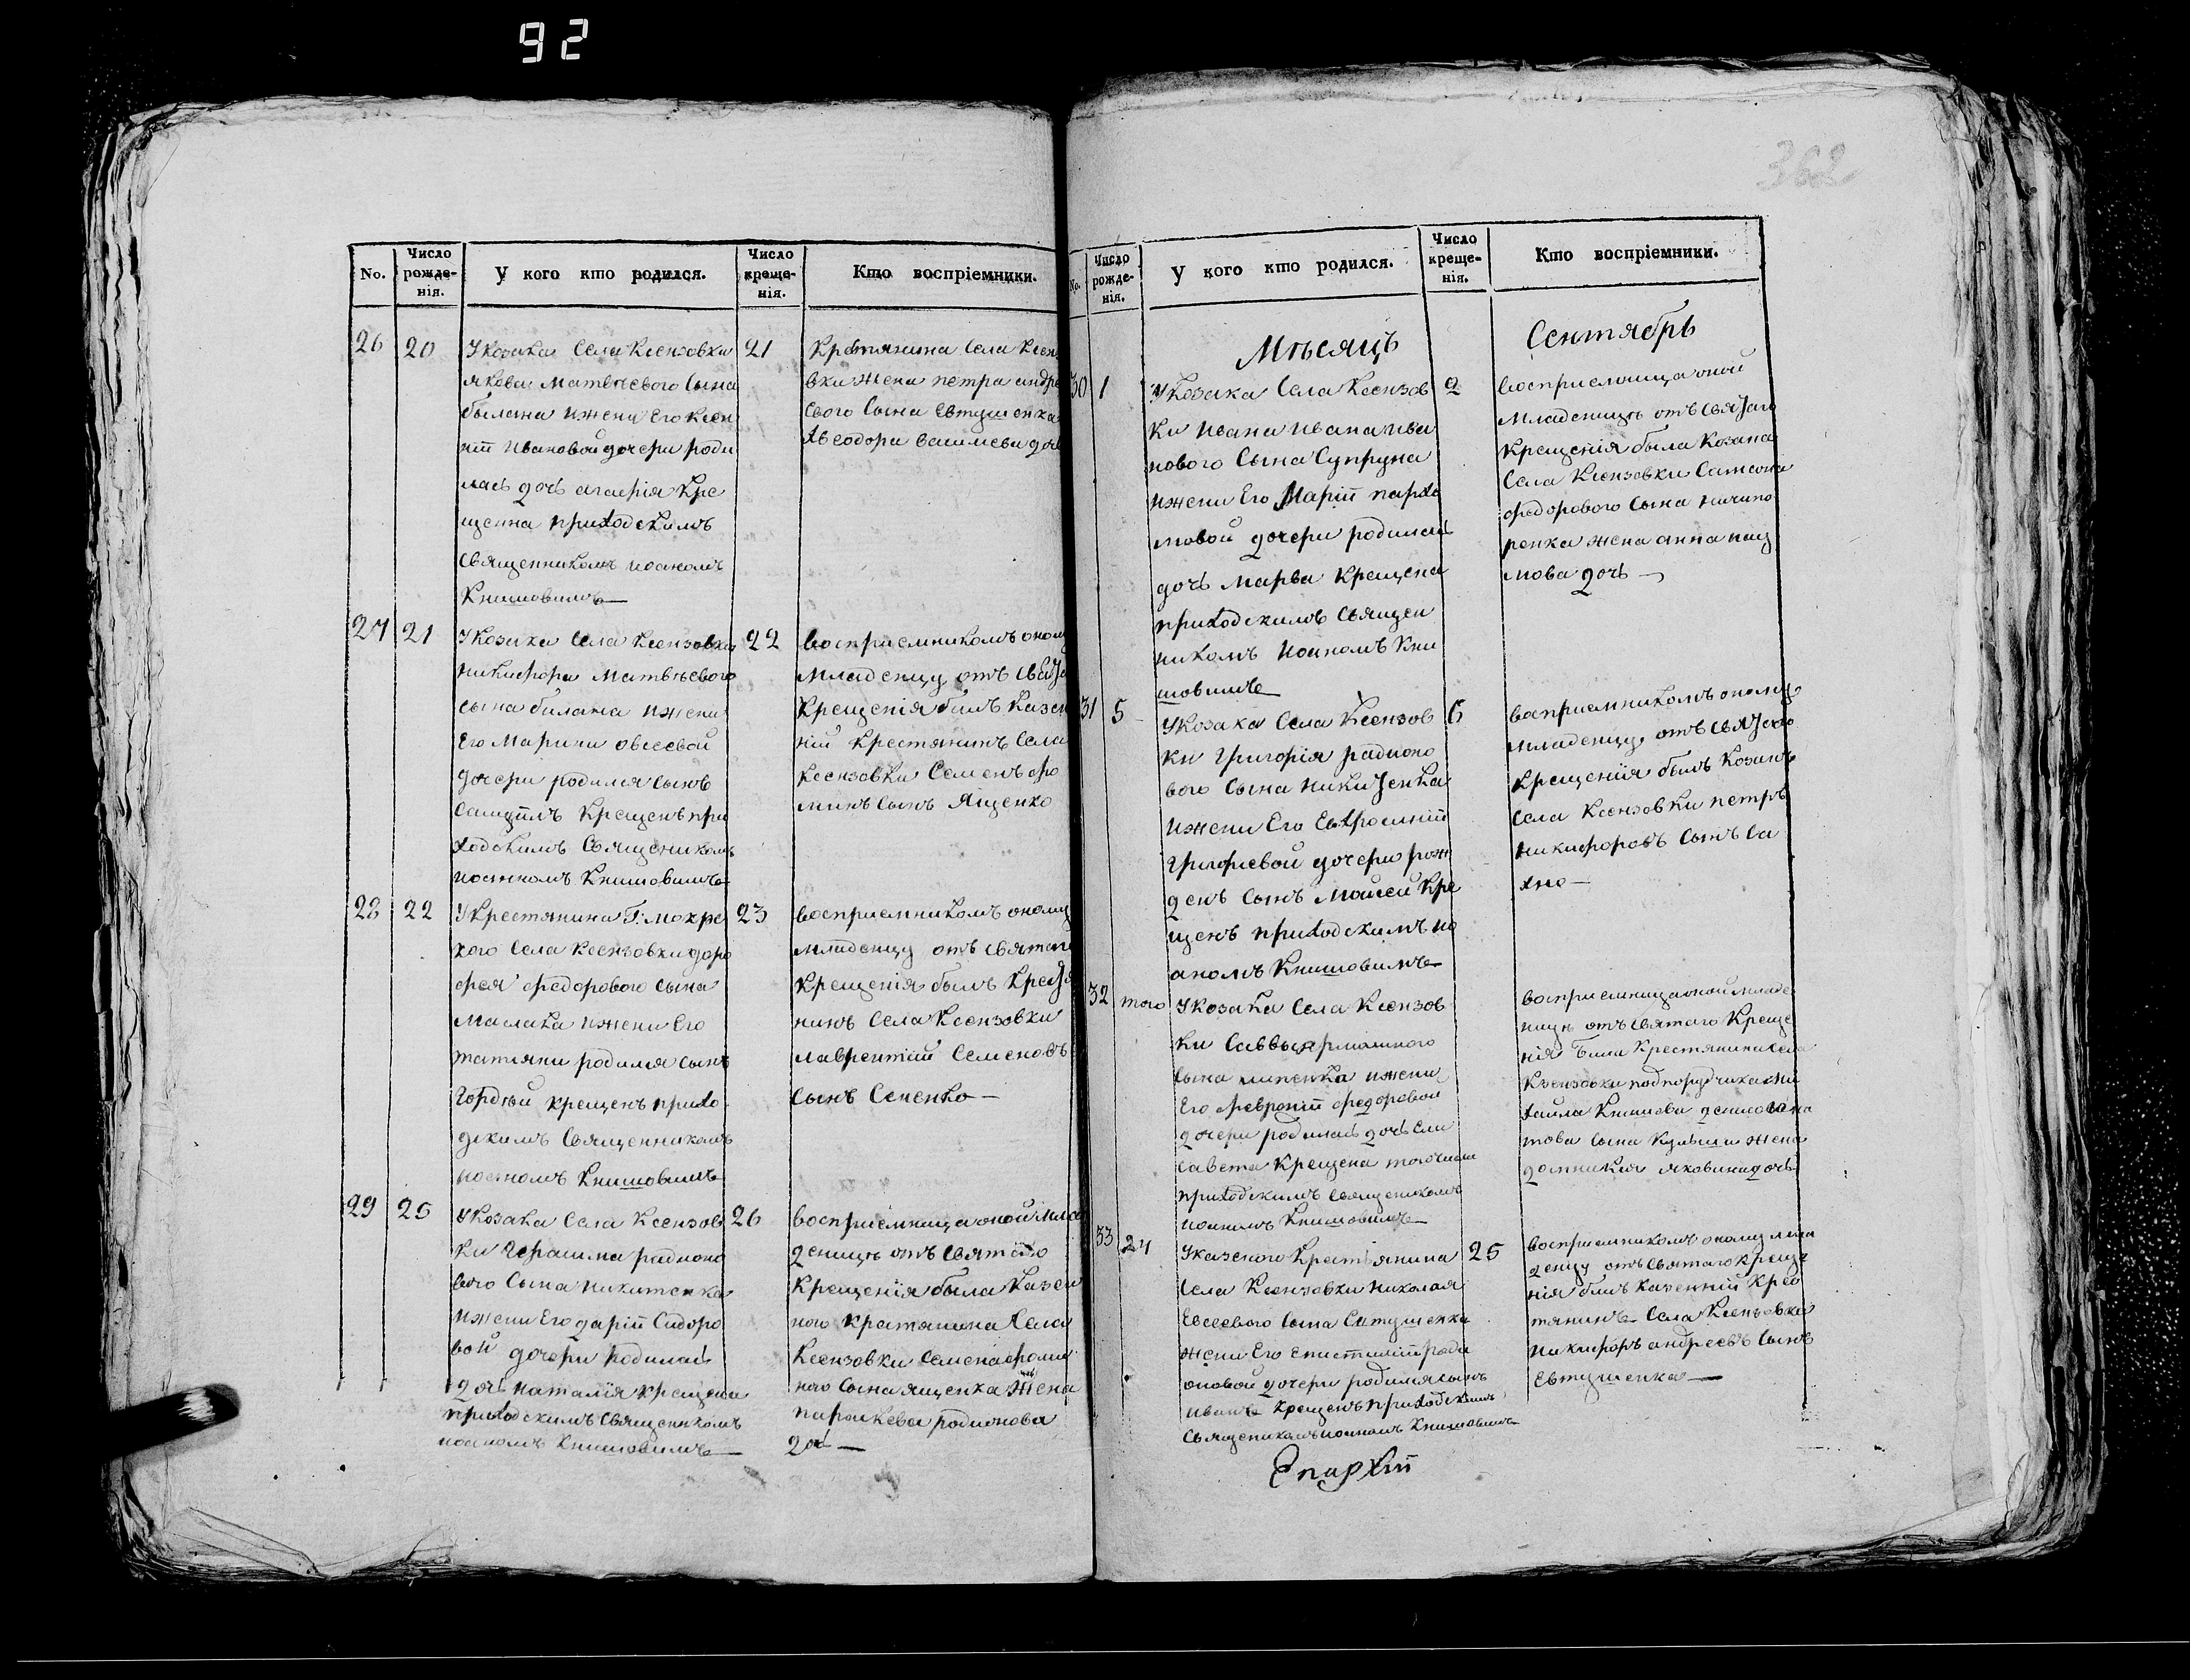 92
362
No.
Число рожде-нія.
У кого кто родился.
Число креще-нія.
Кто воспріемники.
26
20
У козака Села Ксензовки
якова Матвѣевого Сына
былана и жени Его Ксен
ніи Ивановой дочери роди
лась дочь агафія Кре
щенна приходскимъ
Священникомъ иоаномъ
Книшовимъ
21
Крестянина Села Ксен
вки жена петра андре
евого Сына Евтушенка
Ѳеодора василева доч
27
21
У Козака Села Ксензовки
никифора Матвѣевого
сына билана и жени
Его Марини овсеевой
дочери родился сынъ
Самуилъ Крещенъ при
ходскимъ Священикомъ
иоанномъ Книшовимъ
22
восприемникомъ оному
младенцу отъ Свята
Крещенія билъ Казен
ній Крестянинъ Села
Ксензовки Семенъ фо
минъ Сынъ Ященко
28
22
У Крестянина Г: Мокре
кого Села Ксензовки доро
фея федорового сына
Маслака и жени Его
татияни родился сынъ
Гордѣй крещенъ прихо
дскимъ Священникомъ
иоаномъ Книшовимъ
23
восприемникомъ оному
младенцу отъ Святаго
Крещенія былъ Крестя
нинъ Села Ксензовки
лаврентій Семеновъ
Сынъ Сененко
29
25
У Козака Села Ксензов
ки Герасима радионо
вого Сына никитенка
и жени Его дарій Сидоро
вой дочери родилась
дочь наталія крещена
приходскимъ Священикомъ
иоаномъ Книшовимъ
26
восприемница оной мла
деницѣ отъ Святаго
Крещенія была Казен
ного Крестянина Села
Ксензовки Семена фоми
ного Сына ященка жена
параскева родионова
дочь
No.
Число рожде-нія.
У кого кто родился.
Число креще-нія.
Кто воспріемники.
Мѣсяцъ
Сентябрь
30
1
У Козака Села Ксензов
ки Ивана Ивана Ива
нового Сына Супруна
и жени Его Маріи пархо
мовой дочери родилась
дочь Марѳа Крещена
приходскимъ Священ
никомъ Иоаномъ Кни
шовимъ
2
восприемница оной
Младеницѣ отъ Святаго
Крещенія была Козака
Села Ксензовки Самсона
федорового Сына ничипо
ренка жена анна нау
мова дочь
31
5
У Козака Села Ксензов
ки Григорія радионо
вого Сына Никитенка
и жени Его Евфросиніи
Григориевой дочери рож
денъ Сынъ Мойсей Кре
щенъ приходскимъ ио
аномъ Книшовимъ
6
восприемникомъ оному
младенцу отъ Святого
Крещенія былъ Козакъ
Села Ксензовки петръ
Никифоровъ Сынъ Са
хно
32
того
У Козака Села Ксензов
ки Саввы
Сына липенка и жени
Его февроніи федоровой
дочери родилась дочь Ели
савета Крещена того числа
приходскимъ Священикомъ
иоаномъ Книшовимъ
восприемница оной младе
ницѣ отъ Святаго Креще
нія Била Крестянина Села
Ксензовки подпоручика Ми
хаила Книшова
това Сына жена
домникия яковина дочь
33
24
У казеного Крестьянина
Села Ксензовки Николая
Евсеевого Сына Евтушенка
жени Его Епистиміи ради
оновой дочери родился сынъ
иванъ крещенъ приходскимъ
Священикомъ иоаномъ Книшовимъ
25
восприемникомъ оному мла
денцу отъ Святаго Креще
нія билъ Казенний Крес
тянинъ Села Ксензовки
Никифоръ андреевъ Сынъ
Евтушенка
Епархіи